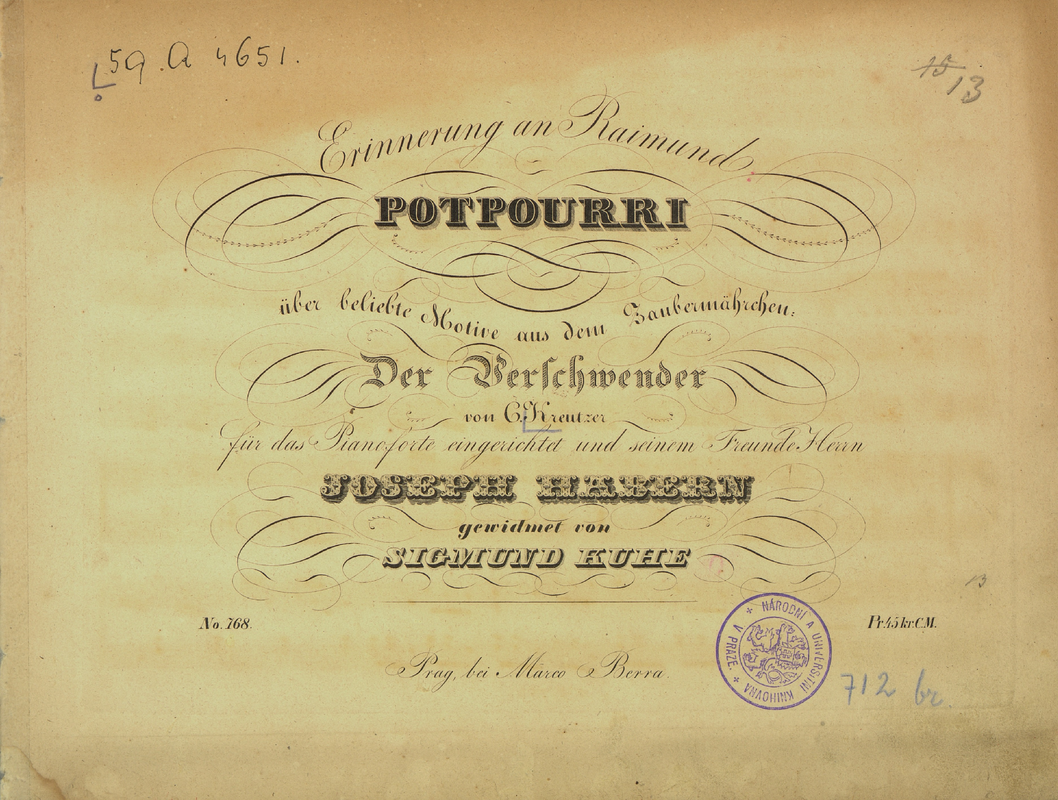 59.A 4651.
15 13
Erinnerung an Raimund
POTPOURRI
über beliebte Motive aus dem Zaubermährchen:
Der Verschwender
von C. Kreutzer
für das Pianoforte eingerichtet und seinem Freunde Herrn
JOSEPH HABERN
gewidmet von
SIGMUND KUHE
13
No. 768. Pr. 45 kr. C.M.
Prag, bei Marco Berra.
NÁRODNÍ A UNIVERSITNÍ KNIHOVNA V PRAZE
712 br.